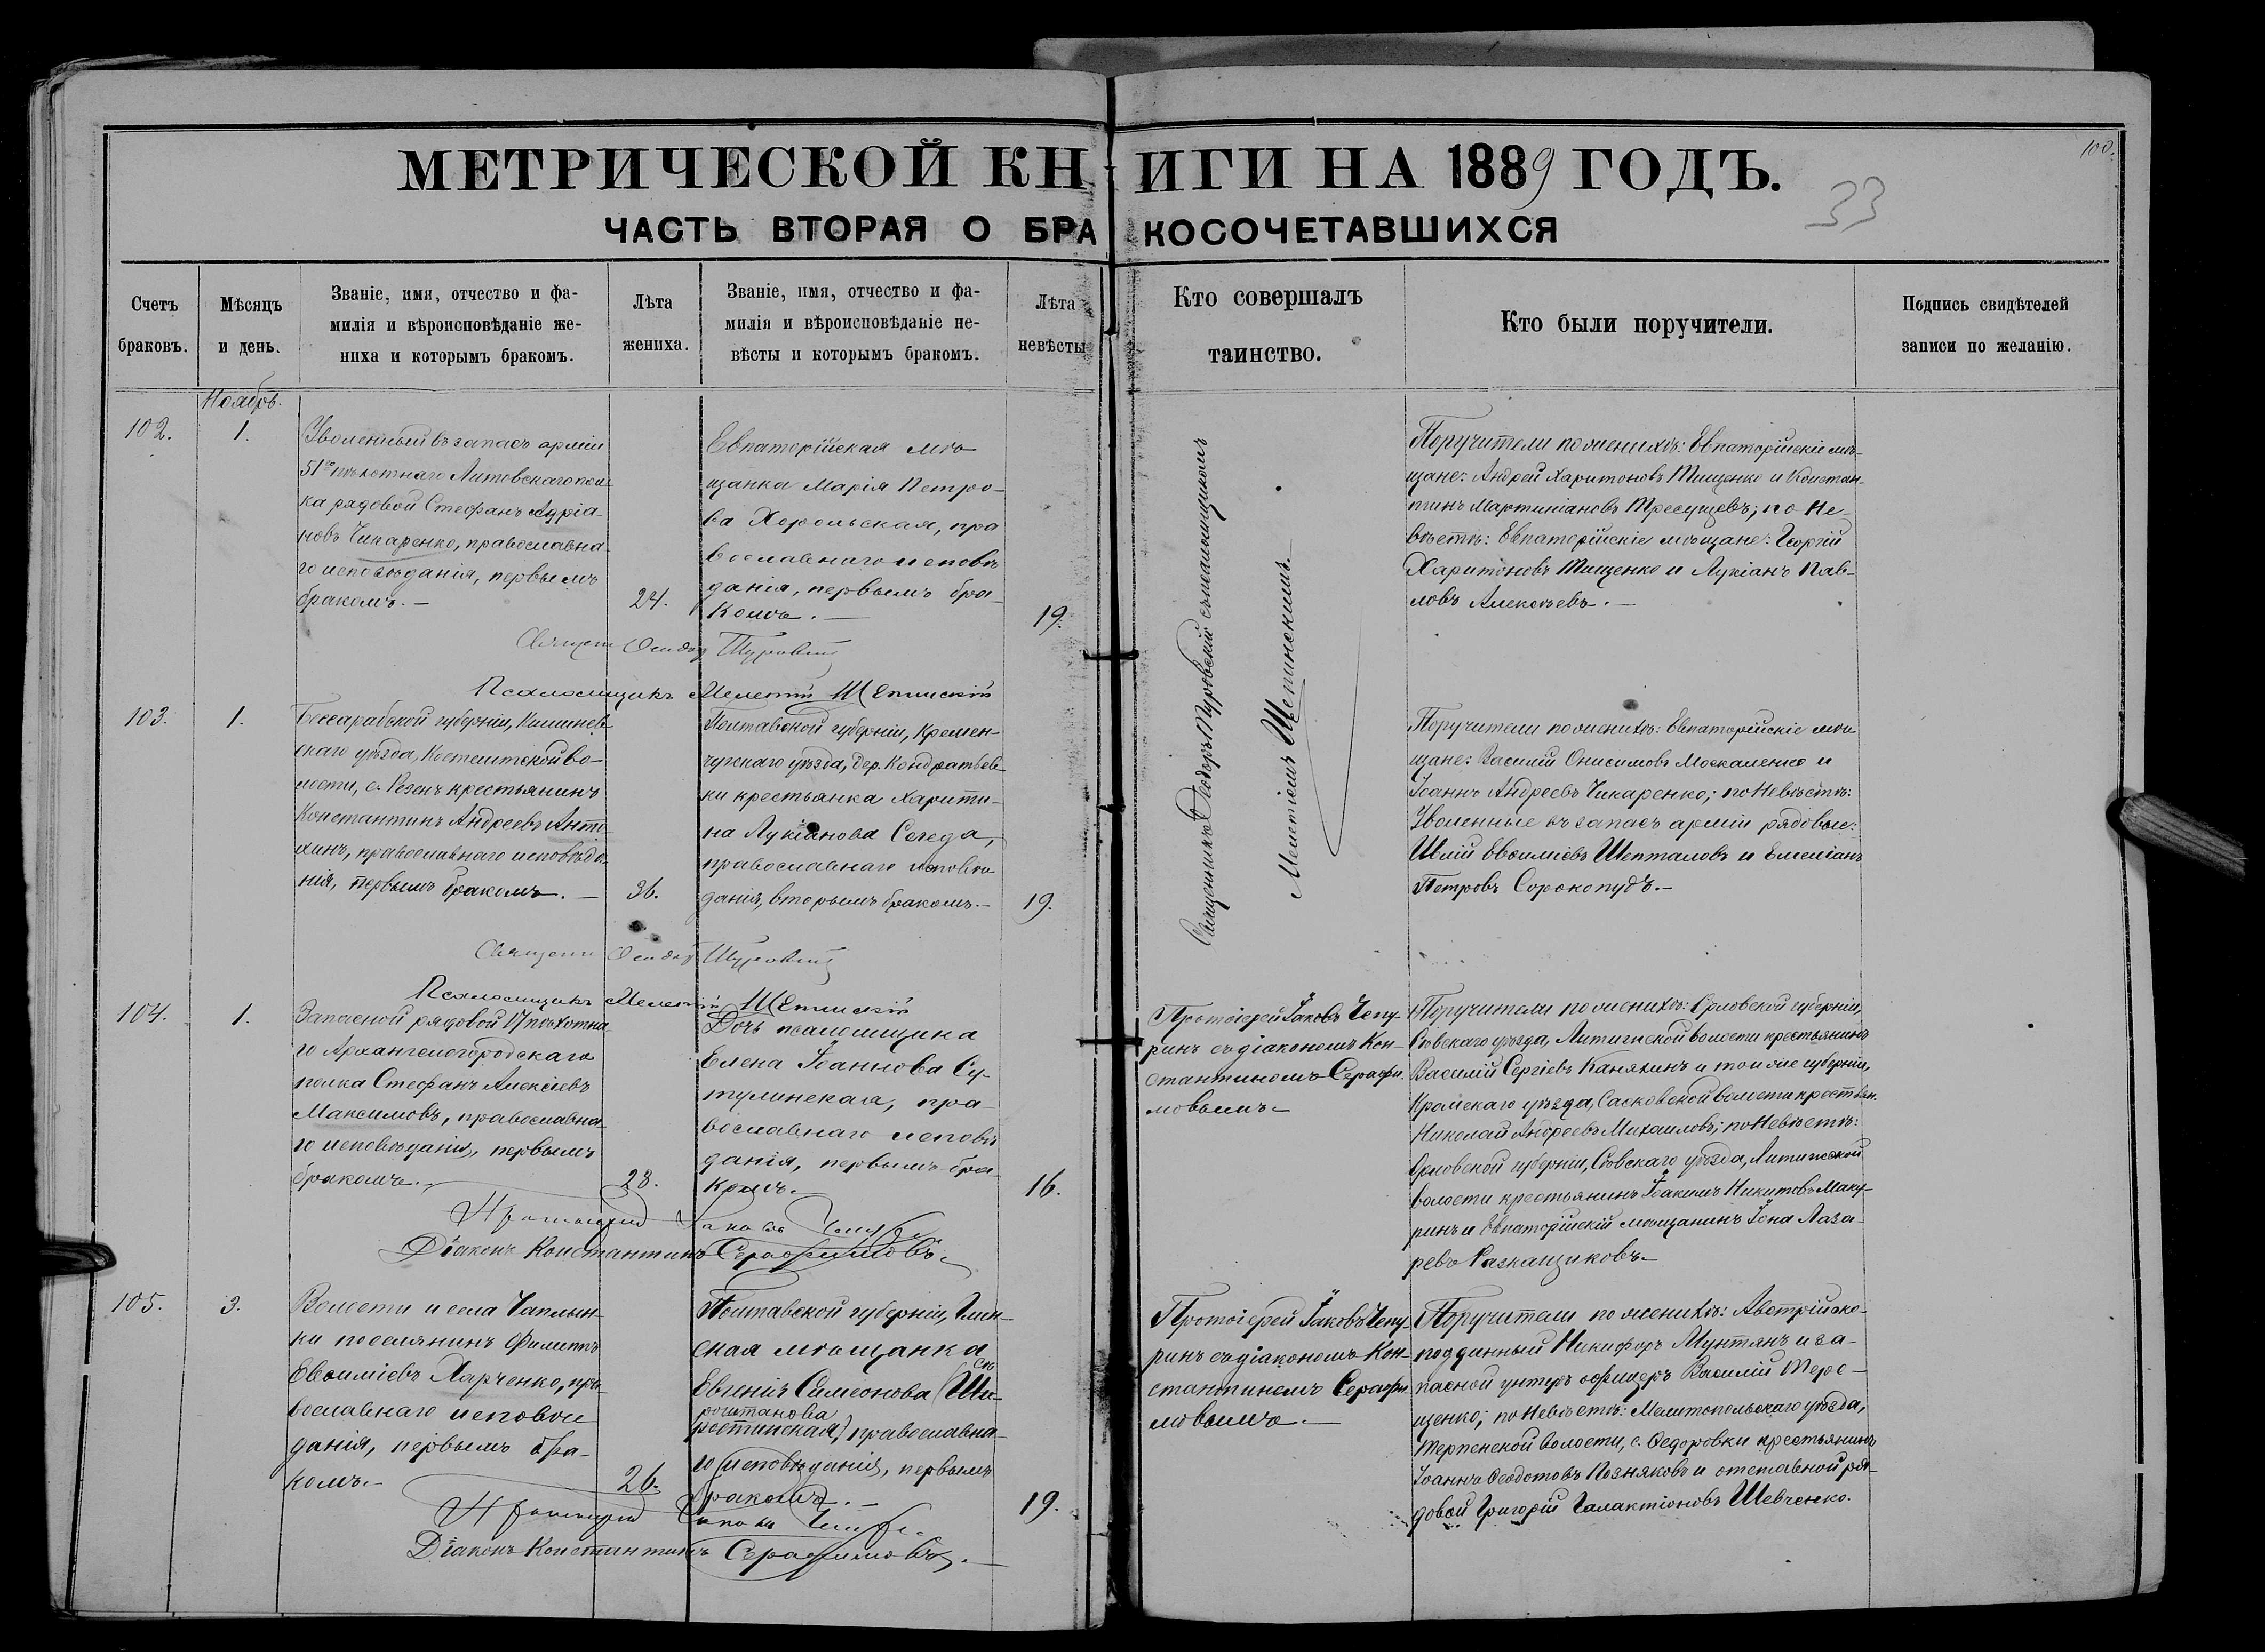 МЕТРИЧЕСКОЙ КНИГИ НА 1889 ГОДЪ.
100.
33
ЧАСТЬ ВТОРАЯ О БРАКОСОЧЕТАВШИХСЯ
Счетъ
браковъ.
Мѣсяцъ
и день.
Званіе, имя, отчество и фа-
милія и вѣроисповѣданіе же-
ниха и которымъ бракомъ.
Лѣта
жениха.
Званіе, имя, отчество и фа-
милія и вѣроисповѣданіе не-
вѣсты и которымъ бракомъ.
Лѣта
невѣсты
Кто совершалъ
таинство.
Кто были поручители.
Подпись свидѣтелей
записи по желанію.
Ноябрь.
102.
1.
Уволенный въ запасъ арміи
51го пѣхотнаго Литовскаго пол-
ка рядовой Стефанъ Адріа-
новъ Чикаренко, православна-
го исповѣданія, первымъ
бракомъ.—
24.
Евпаторійская мѣ-
щанка Марія Петро-
ва Хорольская, пра
вославнаго исповѣ
данія, первымъ бра-
комъ.—
19.
Священникъ Ѳеодоръ Туровскій съ псаломщикомъ
Мелетіемъ Щепинскимъ.
Поручители по женихѣ: Евпаторійскіе мѣ-
щане: Андрей Харитоновъ Тищенко и Констан-
тинъ Мартиніановъ Тресущевъ; по Не-
вѣстѣ: Евпаторійскіе мѣщане: Георгій
Харитоновъ Тищенко и Лукіанъ Пав-
ловъ Алексѣевъ.—
Священ Ѳеодор Туровскій
Псаломщикъ Мелетій Щепинскій
103.
1.
Бессарабской губерніи, Кишинев-
скаго уѣзда, Костештской во-
лости, с. Резенъ крестьянинъ
Константинъ Андреевъ Анто
хинъ, православнаго исповѣда-
нія, первымъ бракомъ.—
36.
Полтавской губерніи, Кремен-
чугскаго уѣзда, дер. Кондратьев-
ки крестьянка Харити-
на Лукіанова Сегеда,
православнаго исповѣ
данія, вторымъ бракомъ.—
19.
Поручители по женихѣ: Евпаторійскіе мѣ
щане: Василій Онисимовъ Москаленко и
Іоаннъ Андреевъ Чикаренко; по Невѣстѣ:
Уволенные въ запасъ арміи рядовые:
Илій Евѳиміевъ Шепталовъ и Емеліанъ
Петровъ Сорокопудъ.—
Священ Ѳеодор Туровскій
Псаломщикъ Мелетій Щепинскій
104.
1.
Запасной рядовой 17 пѣхотна
го Архангелогородскаго
полка Стефанъ Алексіевъ
Максимовъ, православна-
го исповѣданія, первымъ
бракомъ.
28.
Дочь псаломщика
Елена Іоаннова Су-
тулинская, пра-
вославнаго исповѣ
данія, первымъ бра-
комъ.
16.
Протоіерей Іаковъ Чепу-
ринъ съ діакономъ Кон-
стантиномъ Серафи-
мовымъ.—
Поручители по женихѣ: Орловской губерніи,
Сѣвскаго уѣзда, Литижской волости крестьянинъ
Василій Сергіевъ Каняхинъ и той же губерніи,
Кромскаго уѣзда, Сасковской волости крестьян.
Николай Андреевъ Михаиловъ; по Невѣстѣ:
Орловской губерніи, Сѣвскаго уѣзда, Литижской
волости крестьянинъ Іоакимъ Никитовъ Маку-
ринъ и Евпаторійскій мѣщанинъ Іона Лаза-
ревъ Разкащиковъ.—
Протоіерей Іаковъ Чепур
Діаконъ Константинъ Серафимовъ.
105.
3.
Волости и села Чаплын-
ки поселянинъ Филиппъ
Евѳиміевъ Харченко, пра-
вославнаго исповѣ
данія, первымъ бра-
комъ.—
26.
Полтавской губерніи,
ская мѣщанка
Евгенія Симеонова
православна-
го исповѣданія, первымъ
бракомъ.—
19.
Протоіерей Іаковъ Чепу-
ринъ съ діакономъ Кон-
стантиномъ Серафи
мовымъ.—
Поручители по женихѣ: Австрійско-
подданный Никифоръ Мунтянъ и за-
пасной унтеръ офицеръ Василій Тере-
щенко; по Невѣстѣ: Мелитопольскаго уѣзда,
Терпенской волости, с. Ѳедоровки крестьянинъ
Іоаннъ Ѳеодотовъ Позняковъ и отставной ря-
довой Григорій Галактіоновъ Шевченко.
Протоіерей Іаковъ Чепур
Діаконъ Константинъ Серафимовъ.—